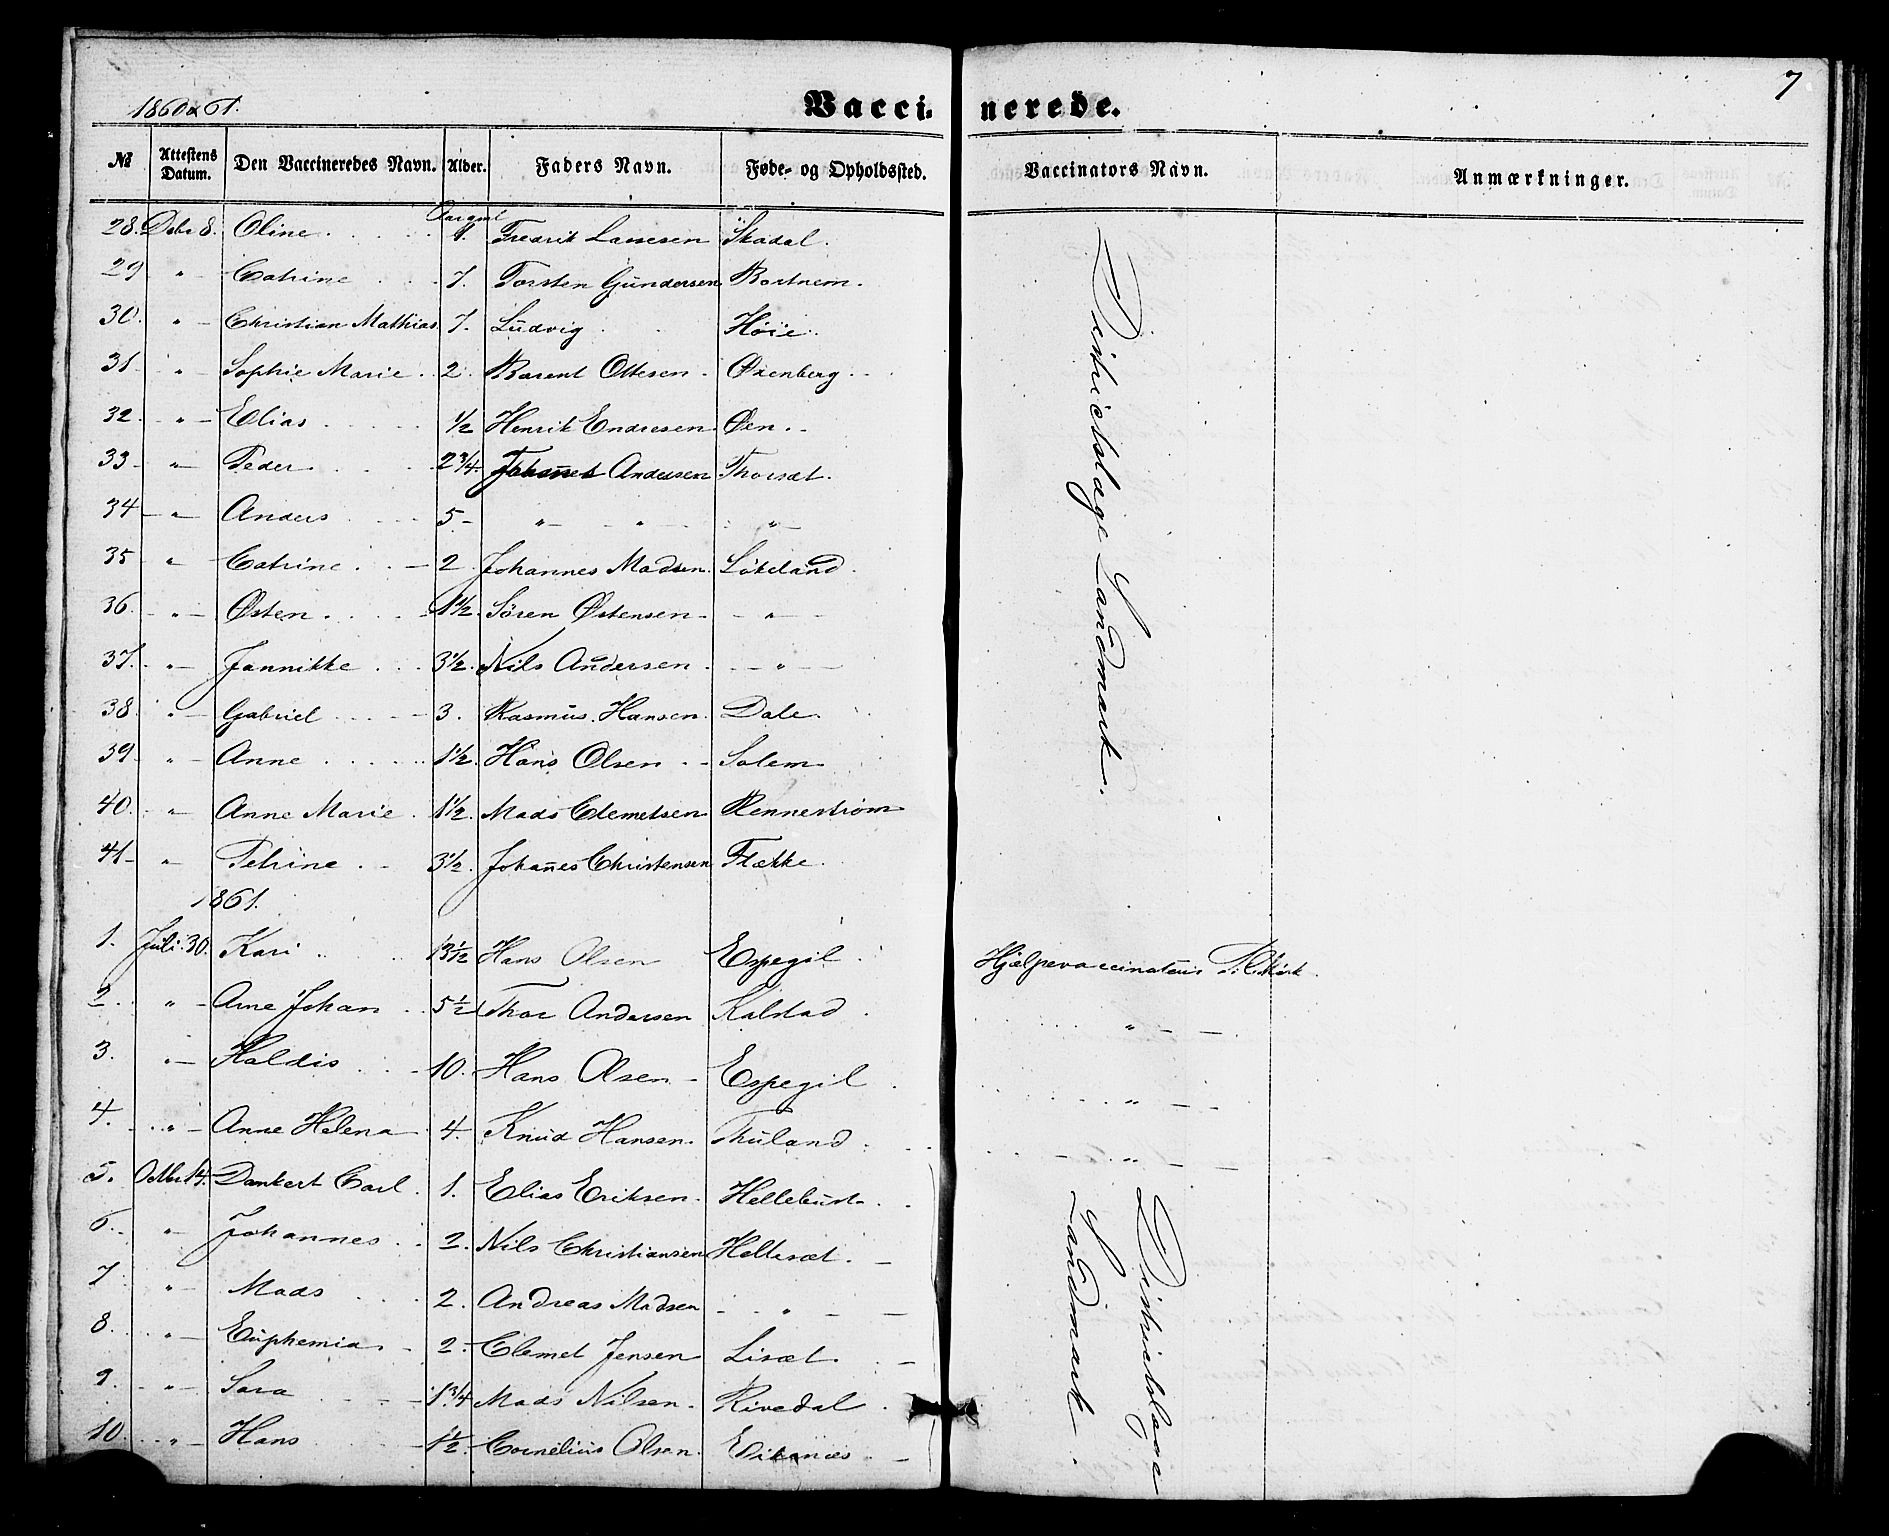 7
1860 & 61.
Vacci-nerede.
№ Attestens Datum. Den Vaccineredes Navn. Alder. Faders Navn. Føde- og Opholdssted. Vaccinators Navn. Anmærkninger.
Aar gml
28. Decbr 8. Oline 1. Fredrik Lassesen Skadal.
29 " Catrine 7. Torsten Gundersen Bortnem.
30. " Christian Mathias 7. Ludvig Høie.
31 " Sophie Marie 2 Barent Ottesen Øxenberg
32. " Elias 1/2 Henrik Endresen Øen.
33 " Peder 2 3/4 Johannes Andersen Thorsæt.
34 " Anders 5 " " "
35 " Catrine 2 Johannes Madsen Løkeland.
36. " Østen 1 1/2 Søren Østensen "
37. " Jannikke 3 1/2 Nils Andersen "
38. " Gabriel 3. Rasmus Hansen Dale.
39 " Anne 1 1/2 Hans Olsen Solem
40. " Anne Marie 1 1/2. Mads Clemetsen Rennestrøm
41 " Petrine 3 1/2. Johannes Christensen Flække.
Districtslæge Landmark.
1861.
1. Juli 30. Kari 13 1/2 Hans Olsen Espegil Hjælpevaccinateur
2. " Arne Johan 5 1/2 Thor Andersen Kalstad "
3. " Haldis 10. Hans Olsen Espegil "
4. " Anne Helena 4. Knud Hansen Thuland "
5. Octbr 14. Dankert Carl 1. Elias Eriksen Hellebust
6. " Johannes 2. Nils Christiansen Hellesæt.
7 " Mads 2. Andreas Madsen "
8. " Euphemia 2. Clemet Jensen Lisæt.
9. " Sara 1 3/4 Mads Nilsen Rivedal
10. " Hans 1 1/2 Cornelius Olsen Eikenæs
Districtslæge
Landmark.